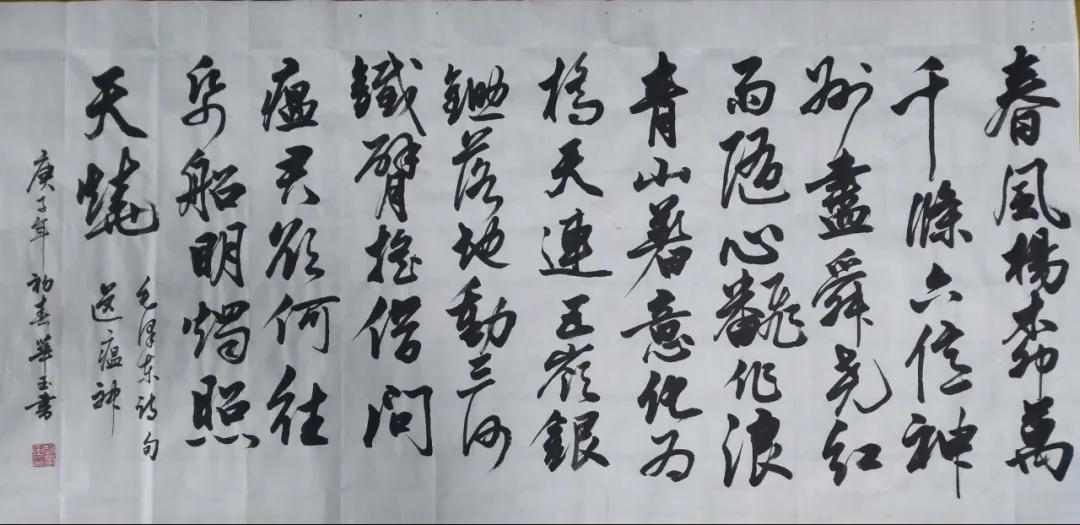 春風楊柳萬
千條六億神
州盡舜堯紅
雨隨心飜作浪
青山著意化為
橋天連五嶺銀
鋤落地動三河
鐵臂搖借問
瘟君欲何往
帋船明燭照
天燒
毛澤東詩句
送瘟神
庚子年初春華玉書